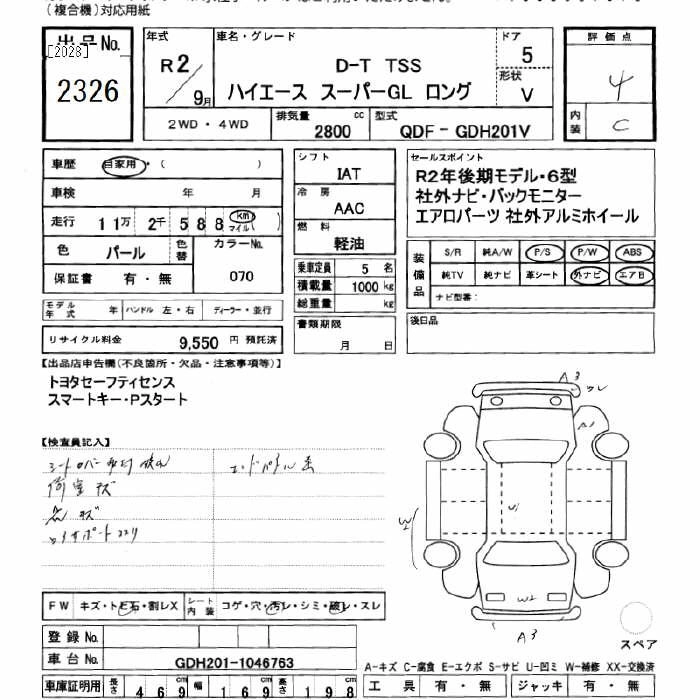 （複合機）対応用紙
出品No.
[2028]
2326
年式
R2/9月
車名・グレード
D-T TSS
ハイエース スーパーGL ロング
ドア
5
形状
V
評価点
4
内装
C
2WD・4WD
排気量
2800 cc
型式
QDF - GDH201V
車歴 自家用・（ ）
車検 年 月
走行 11万 2千 5 8 8 km マイル( )
色 パール 色替 カラーNo. 070
保証書 有・無
モデル年式 年 ハンドル 左・右 ディーラー・並行
リサイクル料金 9,550 円 預託済
シフト
IAT
冷房
AAC
燃料
軽油
乗車定員 5 名
積載量 1000 kg
総重量 kg
書類期限
月 日
セールスポイント
R2年後期モデル・6型
社外ナビ・バックモニター
エアロパーツ 社外アルミホイール
装備品 S/R 純A/W P/S P/W ABS
純TV 純ナビ 革シート 外ナビ エアB
ナビ型番：
後日品
【出品店申告欄(不良箇所・欠品・注意事項等)】
トヨタセーフティセンス
スマートキー・Pスタート
【検査員記入】
荷室キズ
A3
A1
U1
W2
W2
A3
スペア
FW キズ・トビ石・割レX シート内装 コゲ・穴・汚レ・シミ・破レ・スレ
登録No.
車台No. GDH201-1046763
A-キズ C-腐食 E-エクボ S-サビ U-凹ミ W-補修 XX-交換済
車庫証明用 長さ 469 cm 幅 169 cm 高さ 198 cm
工具 有・無 ジャッキ 有・無